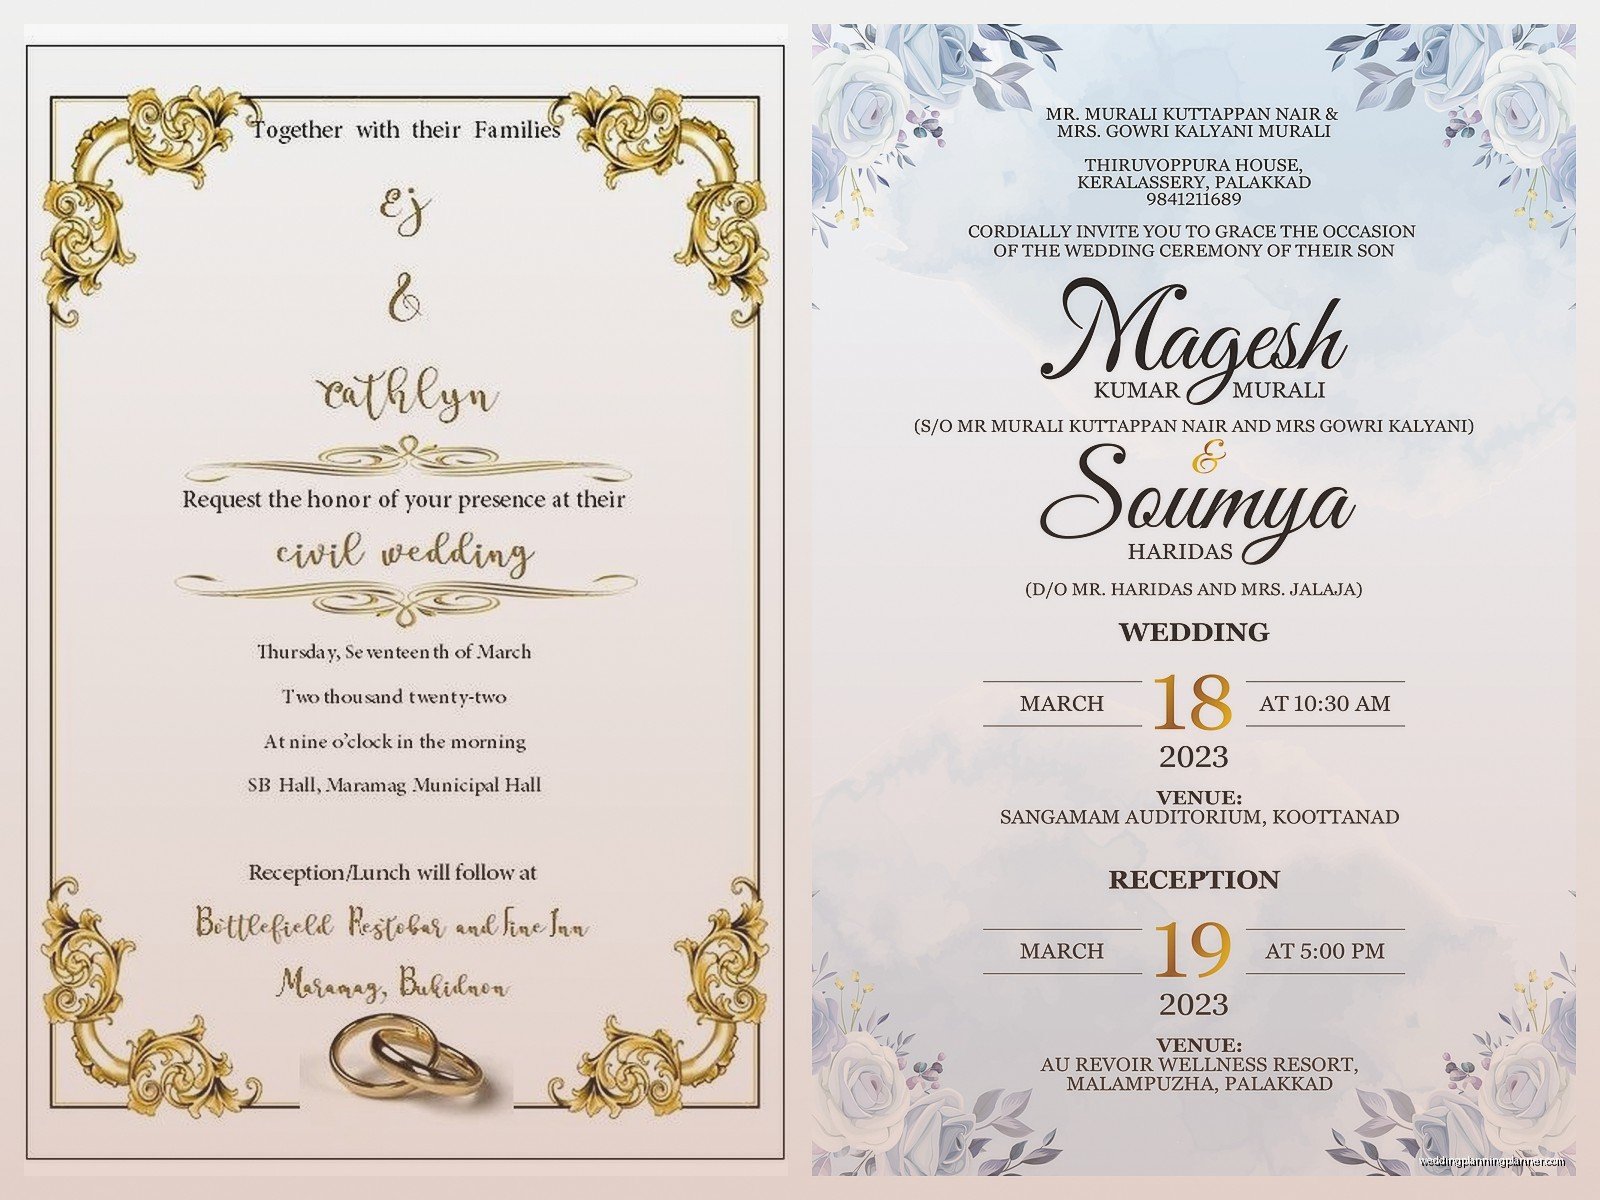 Together with their Families
Ej
&
Cathlyn
Request the honor of your presence at their
civil wedding
Thursday, Seventeenth of March
Two thousand twenty-two
At nine o’clock in the morning
SB Hall, Maramag Municipal Hall
Reception/Lunch will follow at
Bottlefield Restobar and Fine Inn
Maramag, Bukidnon
MR. MURALI KUTTAPPAN NAIR &
MRS. GOWRI KALYANI MURALI
THIRUVOPPURA HOUSE,
KERALASSERY, PALAKKAD
9841211689
CORDIALLY INVITE YOU TO GRACE THE OCCASION
OF THE WEDDING CEREMONY OF THEIR SON
Magesh
KUMAR MURALI
(S/O MR MURALI KUTTAPPAN NAIR AND MRS GOWRI KALYANI)
&
Soumya
HARIDAS
(D/O MR. HARIDAS AND MRS. JALAJA)
WEDDING
MARCH 18 AT 10:30 AM
2023
VENUE:
SANGAMAM AUDITORIUM, KOOTTANAD
RECEPTION
MARCH 19 AT 5:00 PM
2023
VENUE:
AU REVOIR WELLNESS RESORT,
MALAMPUZHA, PALAKKAD
weddingplanningplanner.com